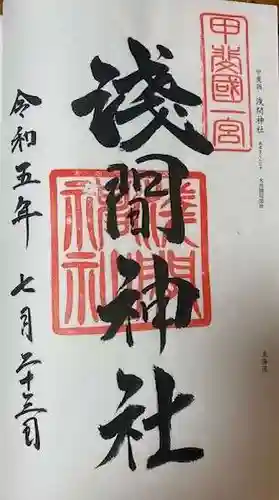 甲斐國一宮
甲斐国 浅間神社
淺間神社
淺間神社
令和五年 七月二十三日